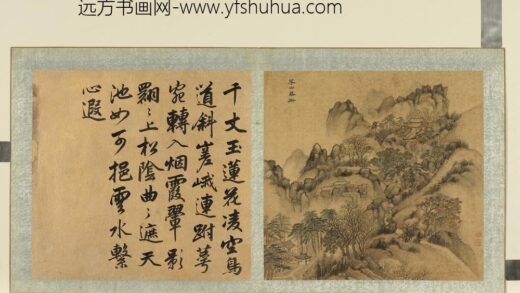 远方书画网-www.yfshuhua.com
千丈玉蓮花凌空鳥
道斜嵳峨連跗萼
宛轉入烟霞翬影
翩〻上松陰曲〻遮天
池如可挹雲水繫
心遐